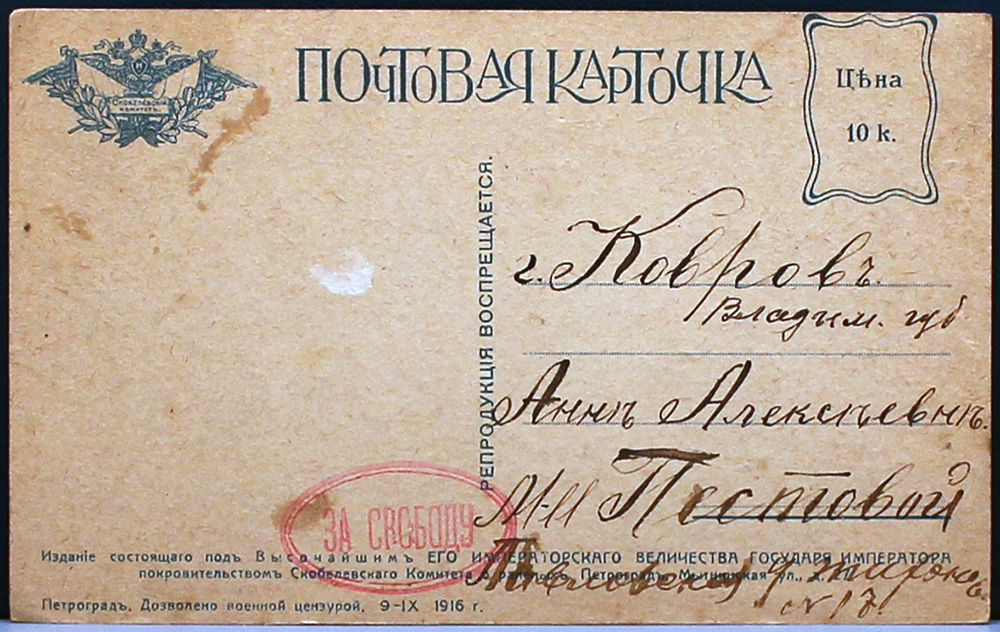 СКОБЕЛЕВСКІЙ
КОМИТЕТЪ.
ПОЧТОВАЯ КАРТОЧКА
Цѣна
10 к.
РЕПРОДУКЦІЯ ВОСПРЕЩАЕТСЯ.
г. Ковровъ.
Владим. губ
Аннѣ Алексѣевнѣ.
Пестовой
ЗА СВОБОДУ
Изданіе состоящаго подъ Высочайшимъ ЕГО ИМПЕРАТОРСКАГО ВЕЛИЧЕСТВА ГОСУДАРЯ ИМПЕРАТОРА
покровительствомъ Скобелевскаго Комитета о раненыхъ, Петроградъ, Мытнинская ул.,
Петроградъ, Дозволено военной цензурой, 9-IX 1916 г.